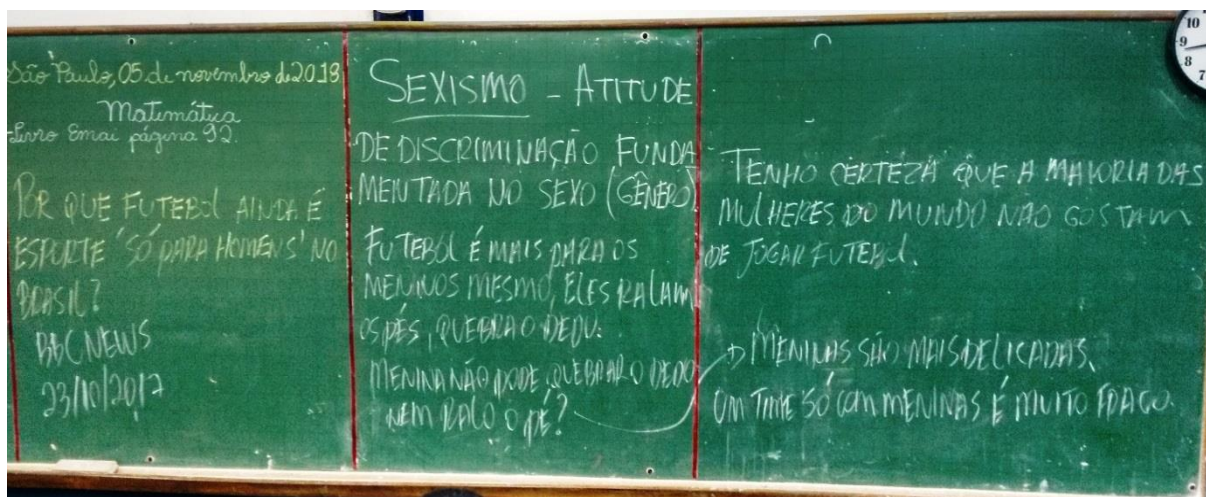 São Paulo, 05 de novembro de 2018
Matemática
-Livro Emai página 92.
POR QUE FUTEBOL AINDA É
ESPORTE 'SÓ PARA HOMENS' NO
BRASIL?
BBC NEWS
23/10/2017
SEXISMO - ATITUDE
DE DISCRIMINAÇÃO FUNDA
MENTADA NO SEXO (GÊNERO)
FUTEBOL É MAIS PARA OS
MENINOS MESMO, ELES RALAM
OS PÉS, QUEBRA O DEDO.
MENINA NÃO PODE QUEBRAR O DEDO
NEM RALO O PÉ?
TENHO CERTEZA QUE A MAIORIA DAS
MULHERES DO MUNDO NÃO GOSTAM
DE JOGAR FUTEBOL.
MENINAS SÃO MAIS DELICADAS.
UM TIME SÓ COM MENINAS É MUITO FRACO.
10
9
8
7